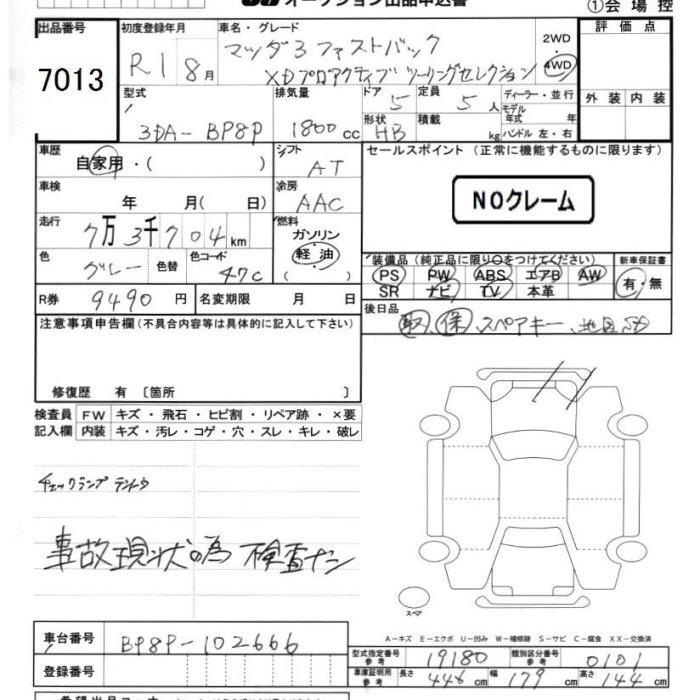 オークション出品申込書
①会場控
出品番号 初度登録年月 車名・グレード 評価点
7013 R1 8月 マツダ3 ファストバック 2WD
XDプロアクティブ ツーリングセレクション 4WD
型式 排気量 ドア 5 定員 5人 ディーラー・並行 外装 内装
3DA-BP8P 1800cc 形状 HB 積載 kg モデル年式 年
ハンドル 左・右
車歴 シフト セールスポイント (正常に機能するものに限ります)
自家用・( ) AT
車検 冷房 NOクレーム
年 月( 日) AAC
走行 燃料
7万3千704km ガソリン
色 色替 色コード 軽油 装備品(純正品に限り○をつけてください) 新車保証書
グレー 47C ( ) PS PW ABS エアB AW 有・無
SR ナビ TV 本革
R券 9490円 名変期限 月 日 後日品
取、保、スペアキー、地図SD
注意事項申告欄(不具合内容等は具体的に記入して下さい)
修復歴 有 〔箇所 〕
検査員 FW キズ・飛石・ヒビ割・リペア跡・×要
記入欄 内装 キズ・汚レ・コゲ・穴・スレ・キレ・破レ
チェックランプ テントウ
事故現状の為 検査ナシ
スペア
A-キズ E-エクボ U-凹み W-補修跡 S-サビ C-腐食 XX-交換済
車台番号 BP8P-102666 型式指定番号 参考 19180 類別区分番号 参考 0101
登録番号 車庫証明用 参考 長さ 446cm 幅 179cm 高さ 144cm